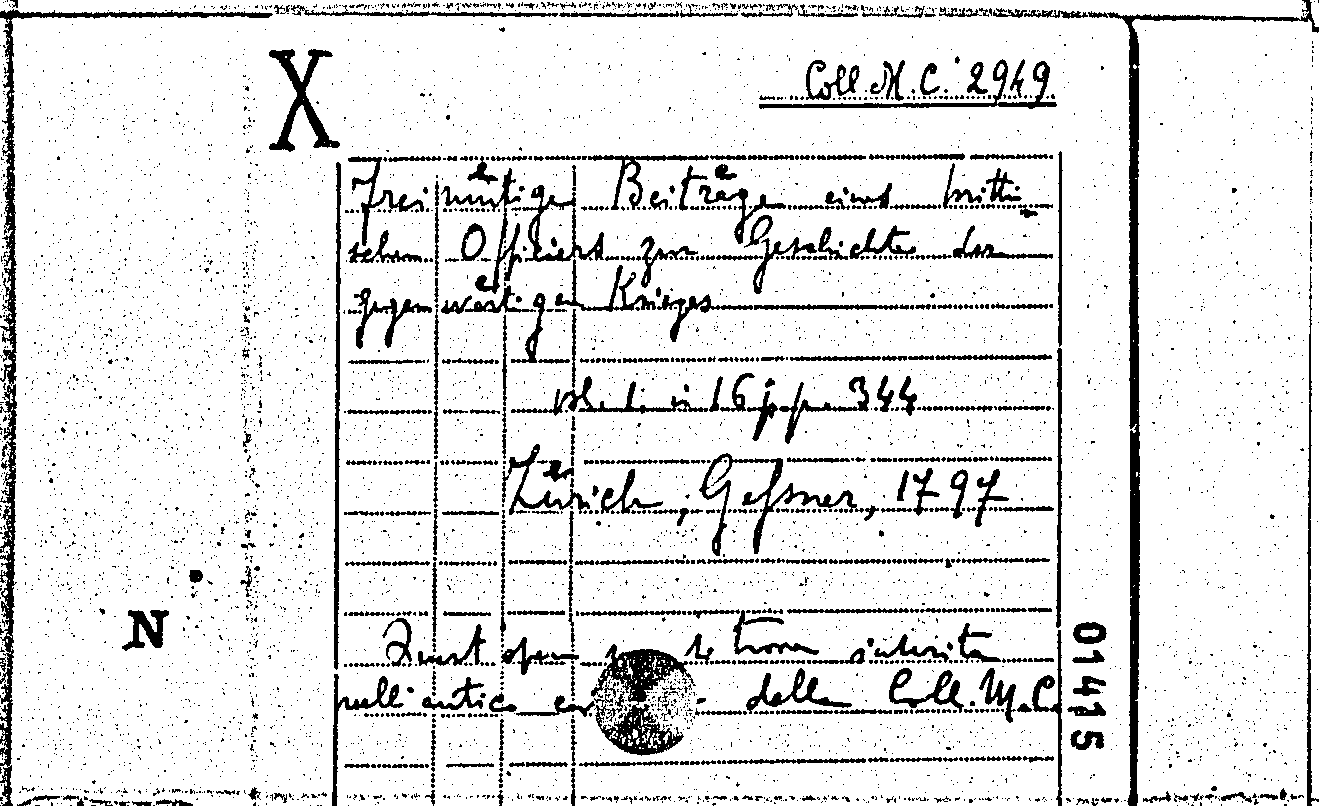 X
Coll. M. C. 2949
Freimuͤtige Beitraͤge eines britti-
schen Officiers zur Geschichte des
gegenwaͤrtigen Krieges
in 16 pp. 344
Zuͤrich, Geſsner, 1797
N
Quest' opera si trova inserita
nell'antico della Coll. M. C.
01415